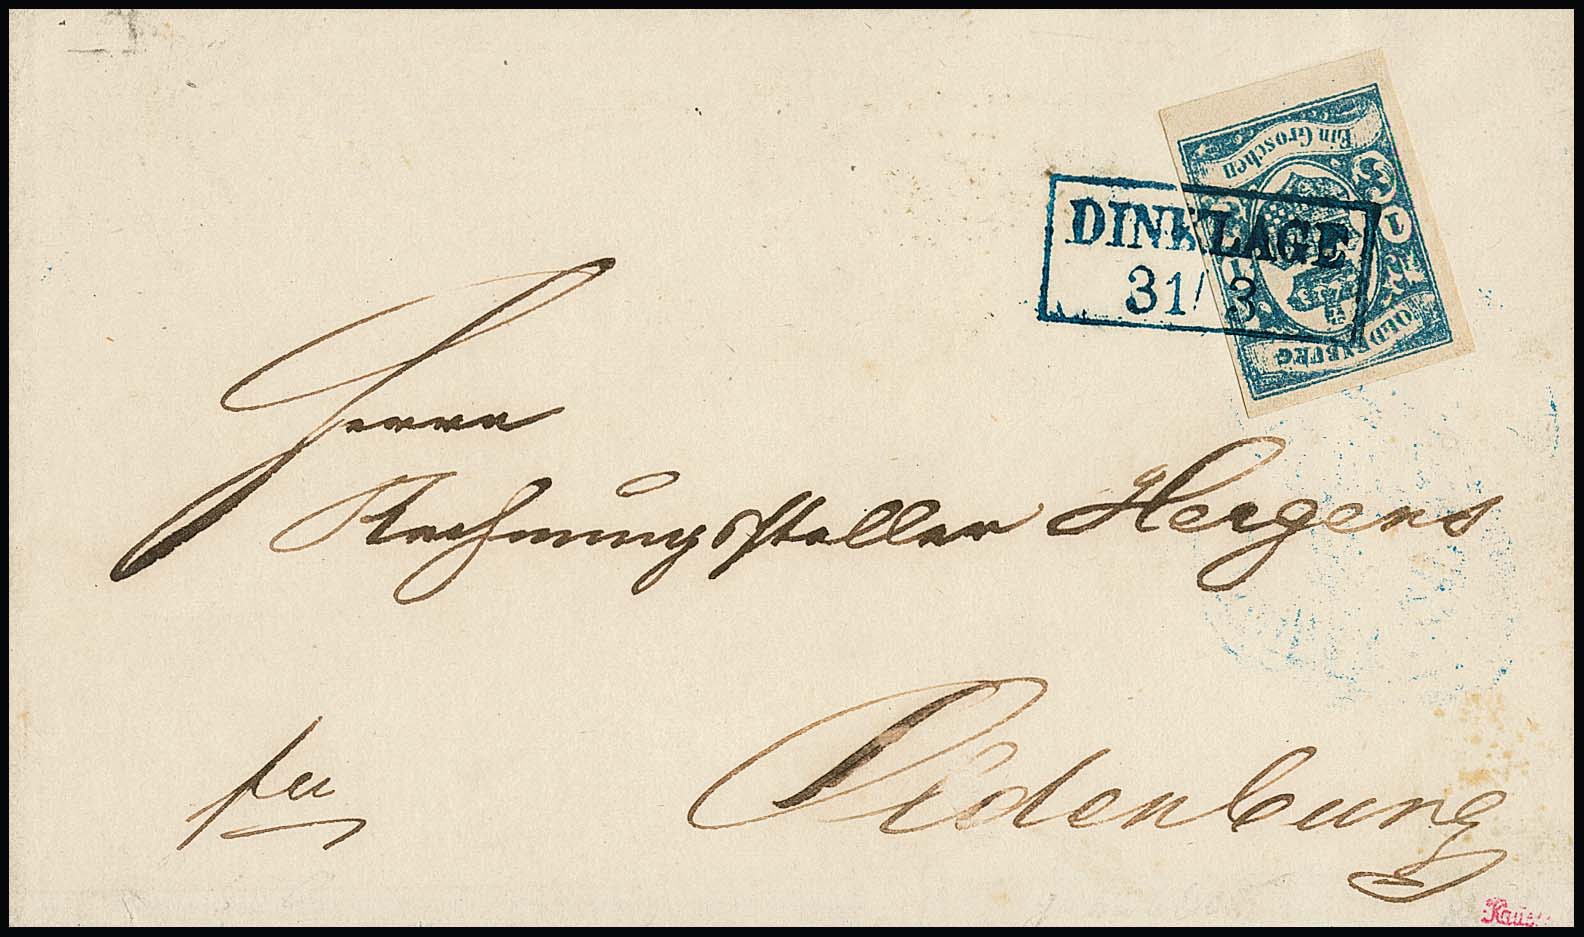 Ein Groschen
1
1
OLDENBURG
DINKLAGE
31/3
Herrn
Rechnungssteller Hergens
Oldenburg